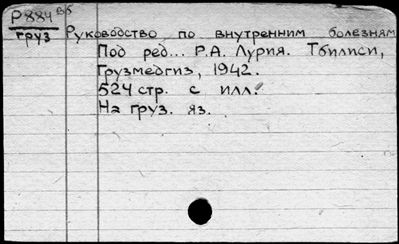 Р884 вб
груз Руководство по внутренним болезням
Под ред... Р.А. Лурия. Тбилиси,
Грузмедгиз, 1942.
524 стр. с илл.
На груз. яз.